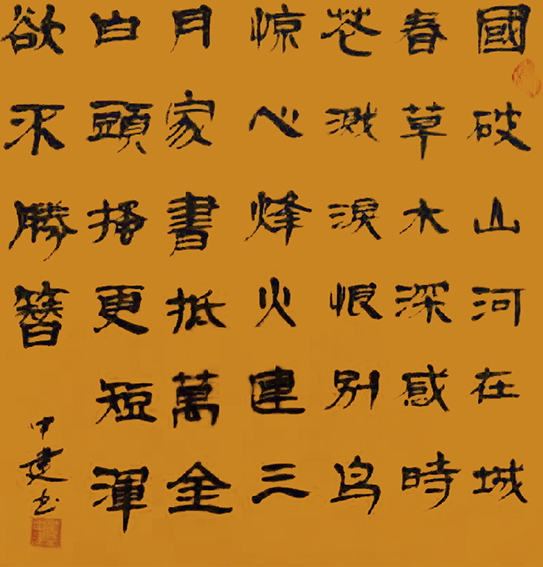 國破山河在城
春草木深感時
花溅淚恨别鸟
惊心烽火連三
月家書抵萬金
白頭搔更短渾
欲不勝簪
中建书